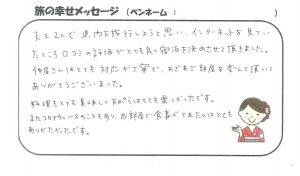 旅の幸せメッセージ（ペンネーム： ）
夫と2人で県内を旅行しようと思い、インターネットを見てい
たところ口コミの評価がとても良く宿泊を決めさせて頂きました。
仲居さんはとても対応が丁寧で、わざわざ部屋を選んで頂いて
ありがとうございました。
料理もとても美味しく
とても楽しかったです。
またコロナウィルスのこともあり、お部屋で食事がとれたのはとても
ありがたかったです。